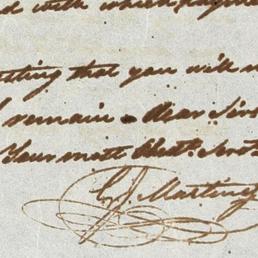 d with which
ting that you will
remain - Dear Sir
Your most Obedt. Servt
G. J. Martinez